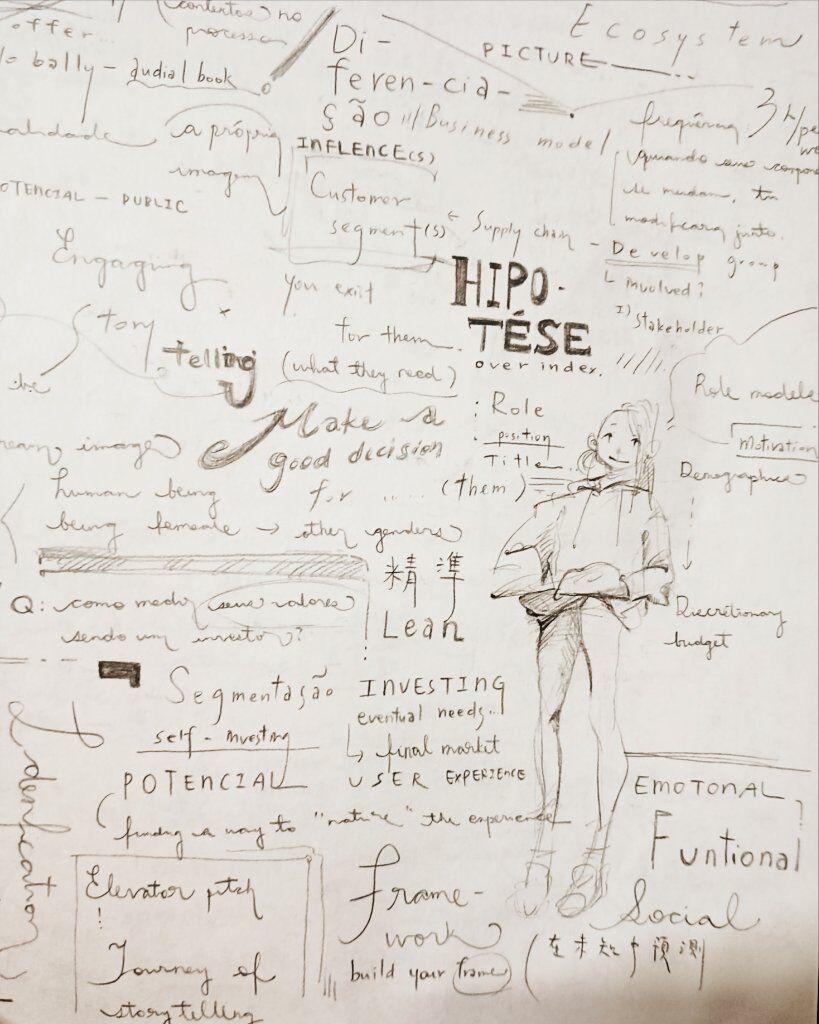 (contextos) no
processo
offer...
bally - audial book
Di-
feren-cia-
ção // Business model
PICTURE
Ecosystem
a própria
imagem
POTENCIAL - PUBLIC
INFLENCE(S)
Customer
segment(s) ← Supply chain
3 x/
quando
se mudam,
modificara junto.
- Develop group
└ involved?
1) Stakeholder
Engaging
Story
telling
you exit
for them
(what they need)
HIPO-
TÉSE
over index.
Make a
good decision
for ..... (them)
: Role
position
Title
Role models
Motivation
Demographics
Discretionary
budget
image
human being
being femeale → other genders
精 準
Lean
Q: como medir seus valores
sendo um investor?
Segmentação
self-investing
POTENCIAL
INVESTING
eventual needs..
↳ final market
USER EXPERIENCE
finding a way to "nature" the experience
Idenfication
Elevator pitch
!
Journey of
storytelling
frame-
work
build your frame
EMOTONAL
Funtional
Social
(在未知中預測